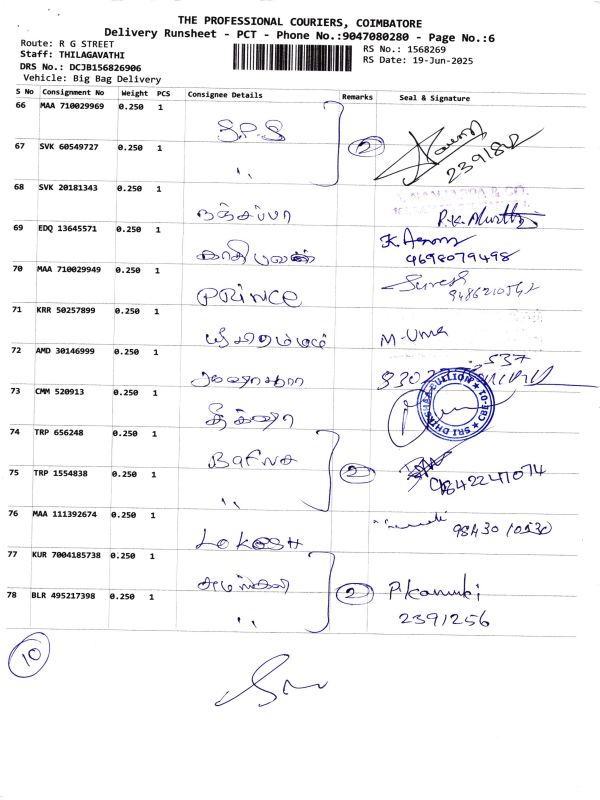 THE PROFESSIONAL COURIERS, COIMBATORE
Delivery Runsheet - PCT - Phone No.:9047080280 - Page No.:6
Route: R G STREET
RS No.: 1568269
Staff: THILAGAVATHI
RS Date: 19-Jun-2025
DRS No.: DCJB156826906
Vehicle: Big Bag Delivery
S No Consignment No Weight PCS Consignee Details Remarks Seal & Signature
66 MAA 710029969 0.250 1 S.P.S
2
67 SVK 60549727 0.250 1 ,,
239182
68 SVK 20181343 0.250 1 நஞ்சப்பா
69 EDQ 13645571 0.250 1
9698079498
70 MAA 710029949 0.250 1 PRINCE Suresh
71 KRR 50257899 0.250 1 M-Uma
72 AMD 30146999 0.250 1
73 CMM 520913 0.250 1
SRI DHARSHAA BULLION TO-CBE
74 TRP 656248 0.250 1 Bafna
2 9842241074
75 TRP 1554838 0.250 1 ,,
76 MAA 111392674 0.250 1 LOKESH 98430 10530
77 KUR 7004185738 0.250 1
2
78 BLR 495217398 0.250 1 ,, 2391256
10